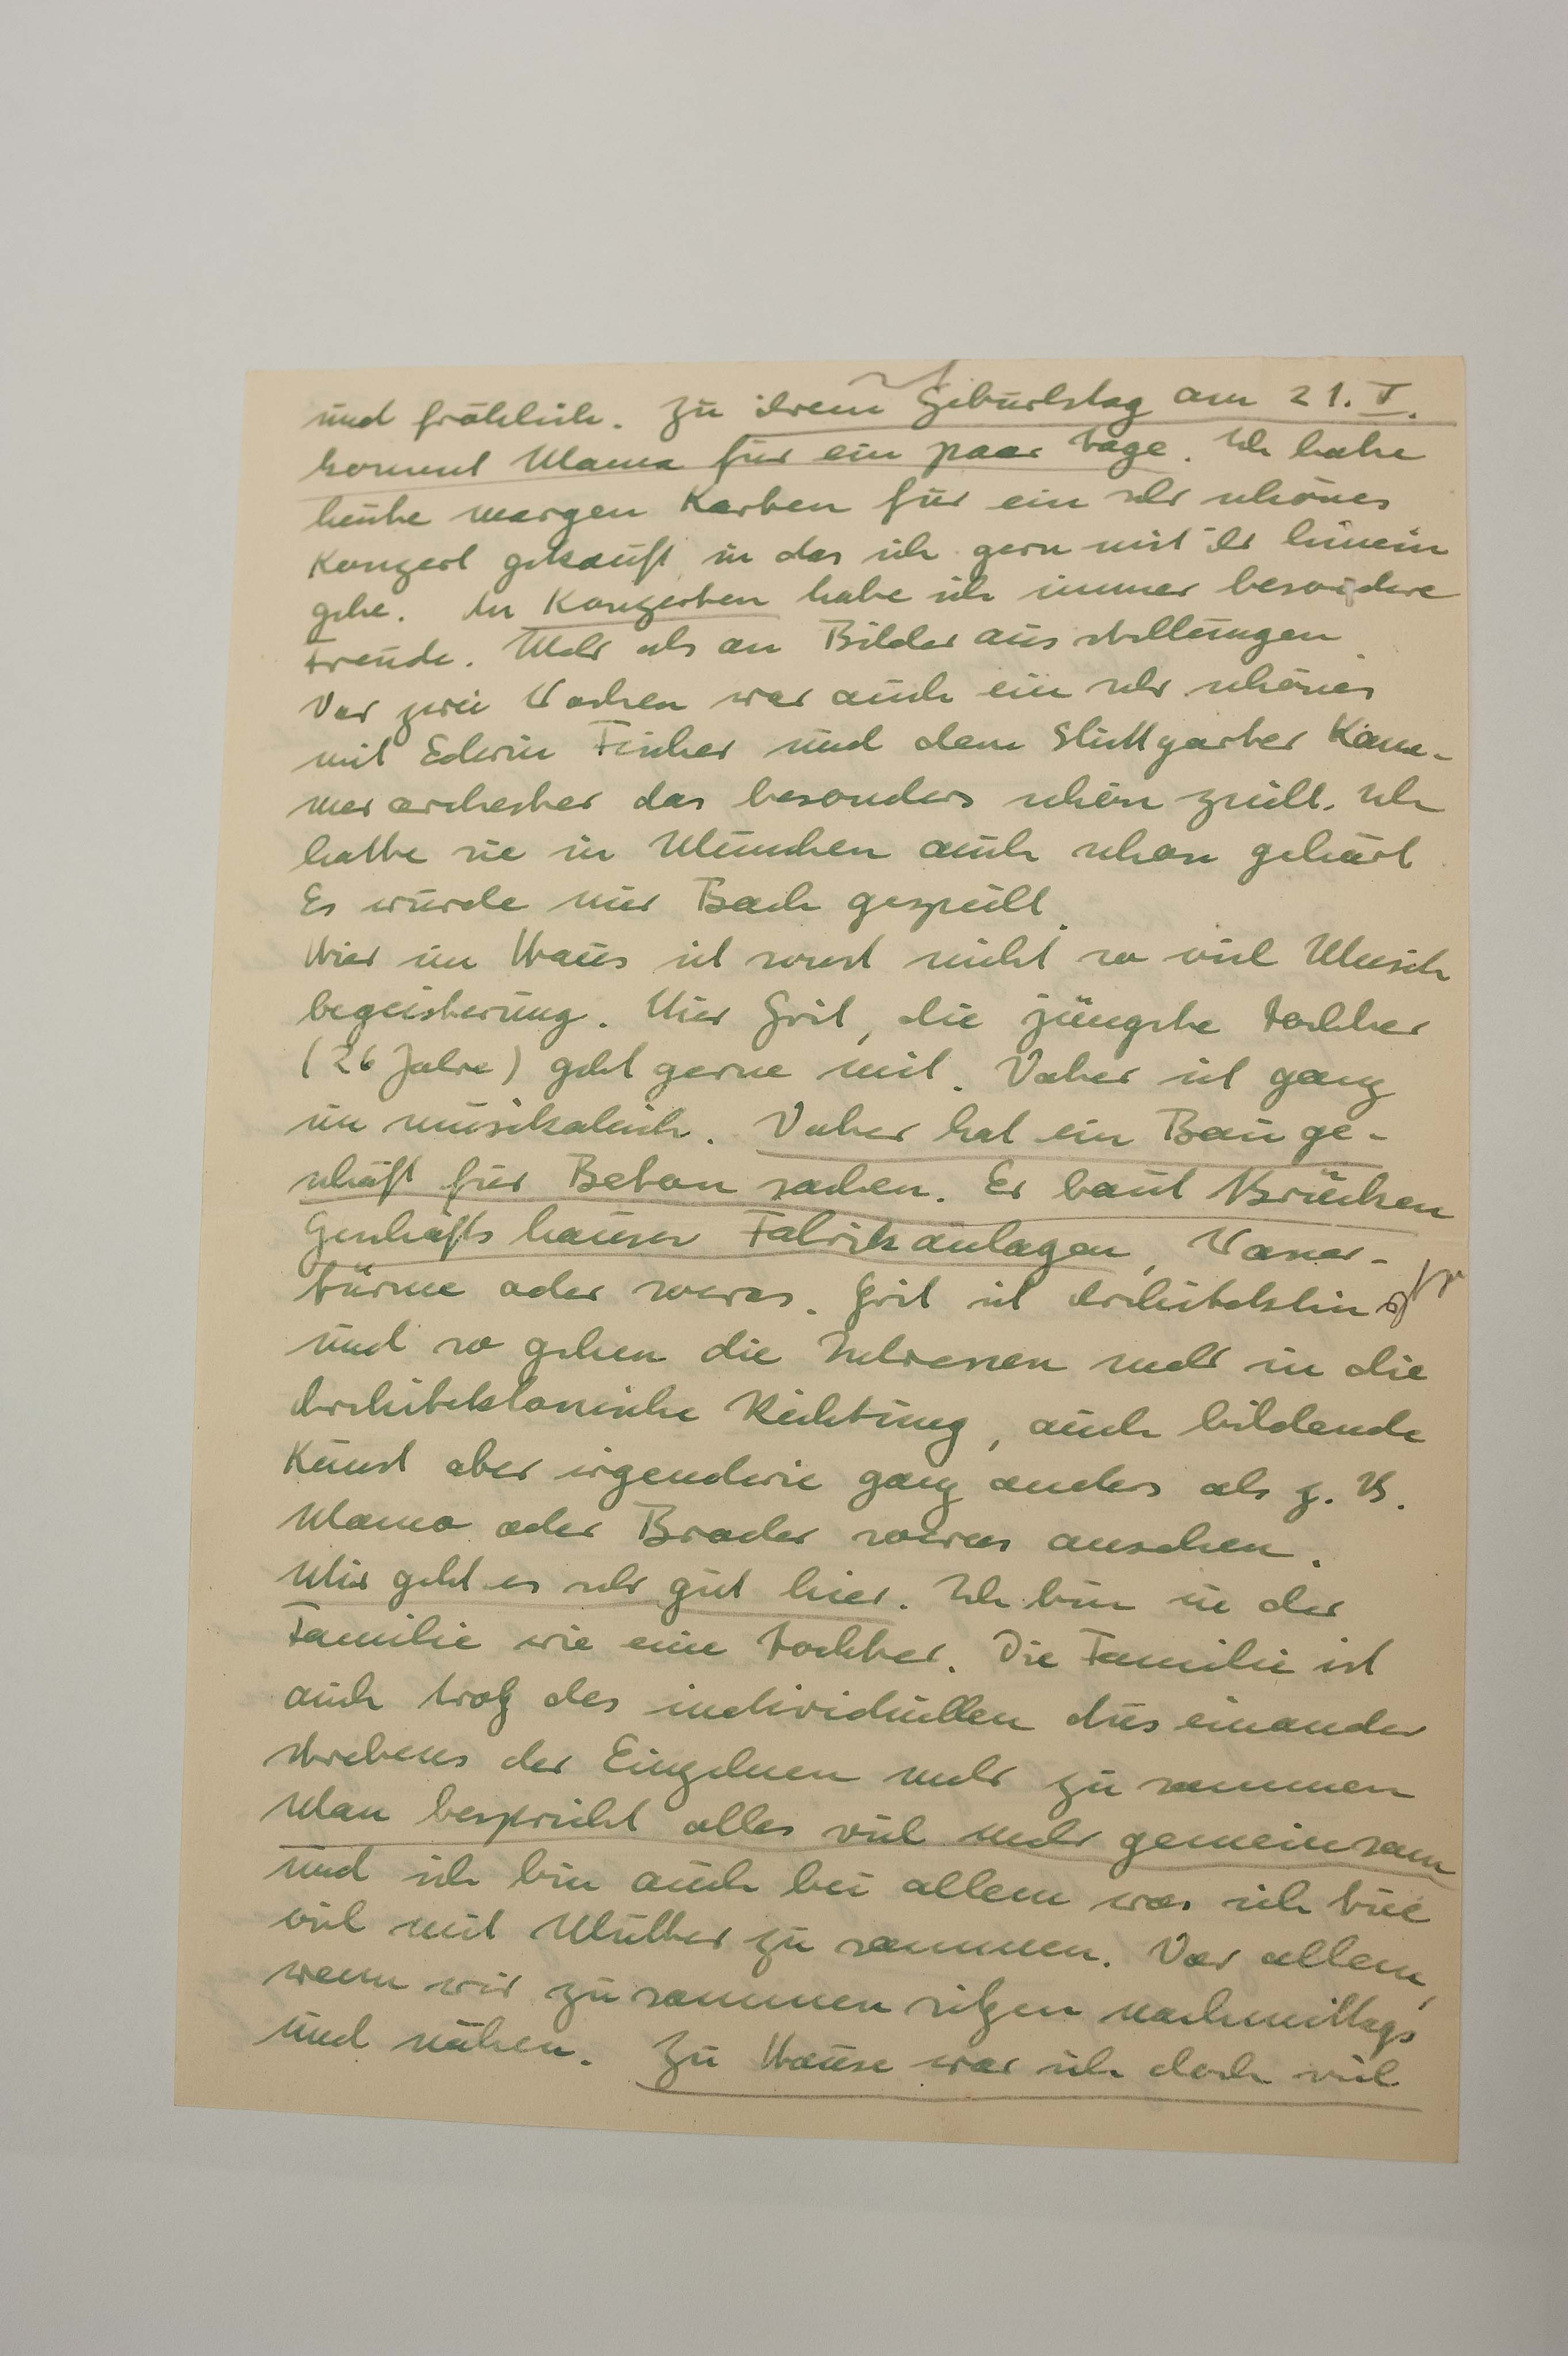 und fröhlich. Zu ihrem Geburtstag am 21. V.
kommt Mama für ein paar Tage. Ich habe
heute morgen Karten für ein sehr schönes
Konzert gekauft, in das ich gern mit ihr hinein
gehe. An Konzerten habe ich immer besondere
Freude. Mehr als an Bilder ausstellungen.
Vor zwei Wochen war auch ein sehr schönes
mit Edwin Fischer und dem Stuttgarter Kam-
mer orchester das besonders schön spielt. Ich
hatte sie in München auch schon gehört
Es wurde nur Bach gespielt.
Hier im Haus ist sonst nicht so viel Musik
begeisterung. Nur Grit, die jüngste Tochter
(26 Jahre) geht gerne mit. Vater ist ganz
un musikalisch. Vater hat ein Bau ge-
schäft für Beton sachen. Er baut Brücken
Geschäfts häuser Fabrik anlagen, Wasser-
türme oder sowas. Grit ist Architektin
und so gehen die Intressen mehr in die
Architektonische Richtung, auch bildende
Kunst aber irgendwie ganz anders als z. B.
Mama oder Bruder sowas ansehen.
Mir geht es sehr gut hier. Ich bin in der
Familie wie eine Tochter. Die Familie ist
auch trotz des individuellen Aus einander
strebens der Einzelnen mehr zu sammen
Man bespricht alles viel mehr gemeinsam
und ich bin auch bei allem was ich tue
viel mit Mutter zu sammen. Vor allem,
wenn wir zu sammen sitzen nachmittags
und nähen. Zu Hause war ich doch viel